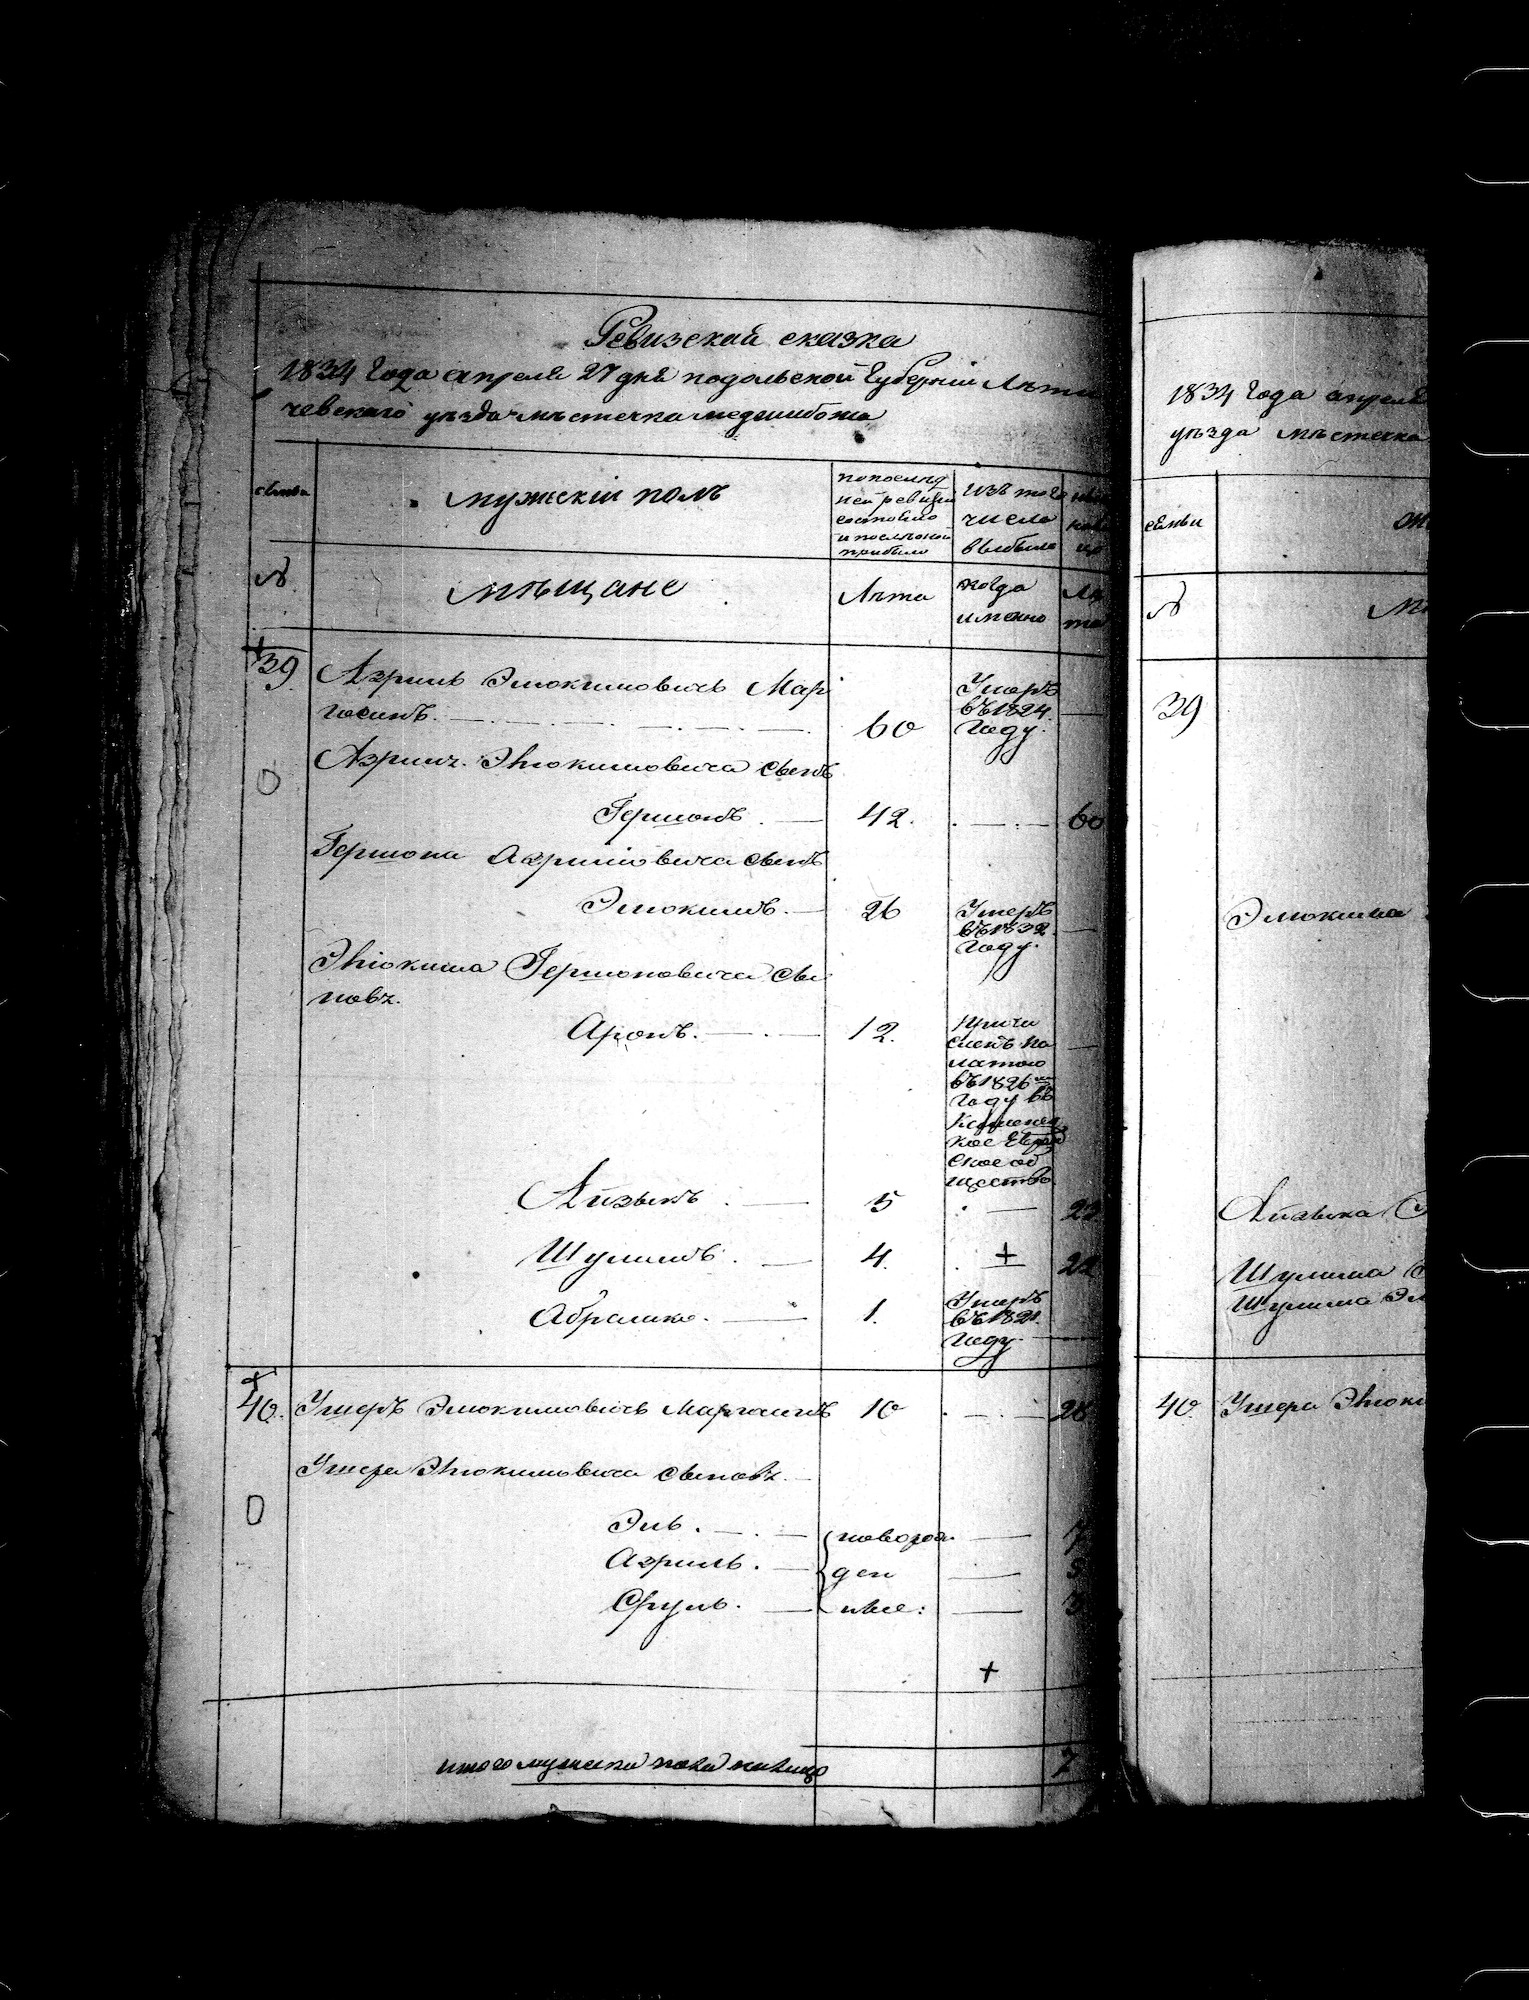 Ревизская сказка
1834 года апреля 27 дня подольской Губернiи Лѣти
чевского уѣзда мѣстечка меджибожа
семьи
мужескiй полъ
по послѣд
ней ревизiи
состояло
и после оной
прибыло
Изъ того
числа
выбыло
№
мѣщане
Лѣта
когда
именно
Лѣ
та
39
Азриль Эльокимовичь Мар
госинъ.
60
Умеръ
въ 1824.
году.
Азрил. Эльокимовича сынъ
Гершонъ
42.
60
Гершона Азрилiовича сынъ
Эльокимъ.
26
Умеръ
въ 1832.
году.
Эльокима Гершоновича сы
новъ.
Аронъ.
12.
причи
сленъ па
латою
въ 1826 м
году въ
Каменец
кое Еврей
ское об
щество
Айзыкъ
5
23
Шулимъ.
4.
+
22
Абрамко.
1.
Умеръ
въ 1821.
году
40.
Ушеръ Эльокимовичь Маргосинъ
10
28
Ушера Эльокимовича сыновъ.
Эль.
новорож
7
Азриль.
ден
5
Сруль.
ные:
3
+
итого мужеска пола налицо
7
1834 года апреля
уѣзда мѣстечка
семьи
№
39
Эльокима
Айзыка
Шулима
Шулима Эл
40
Ушера Эльоки